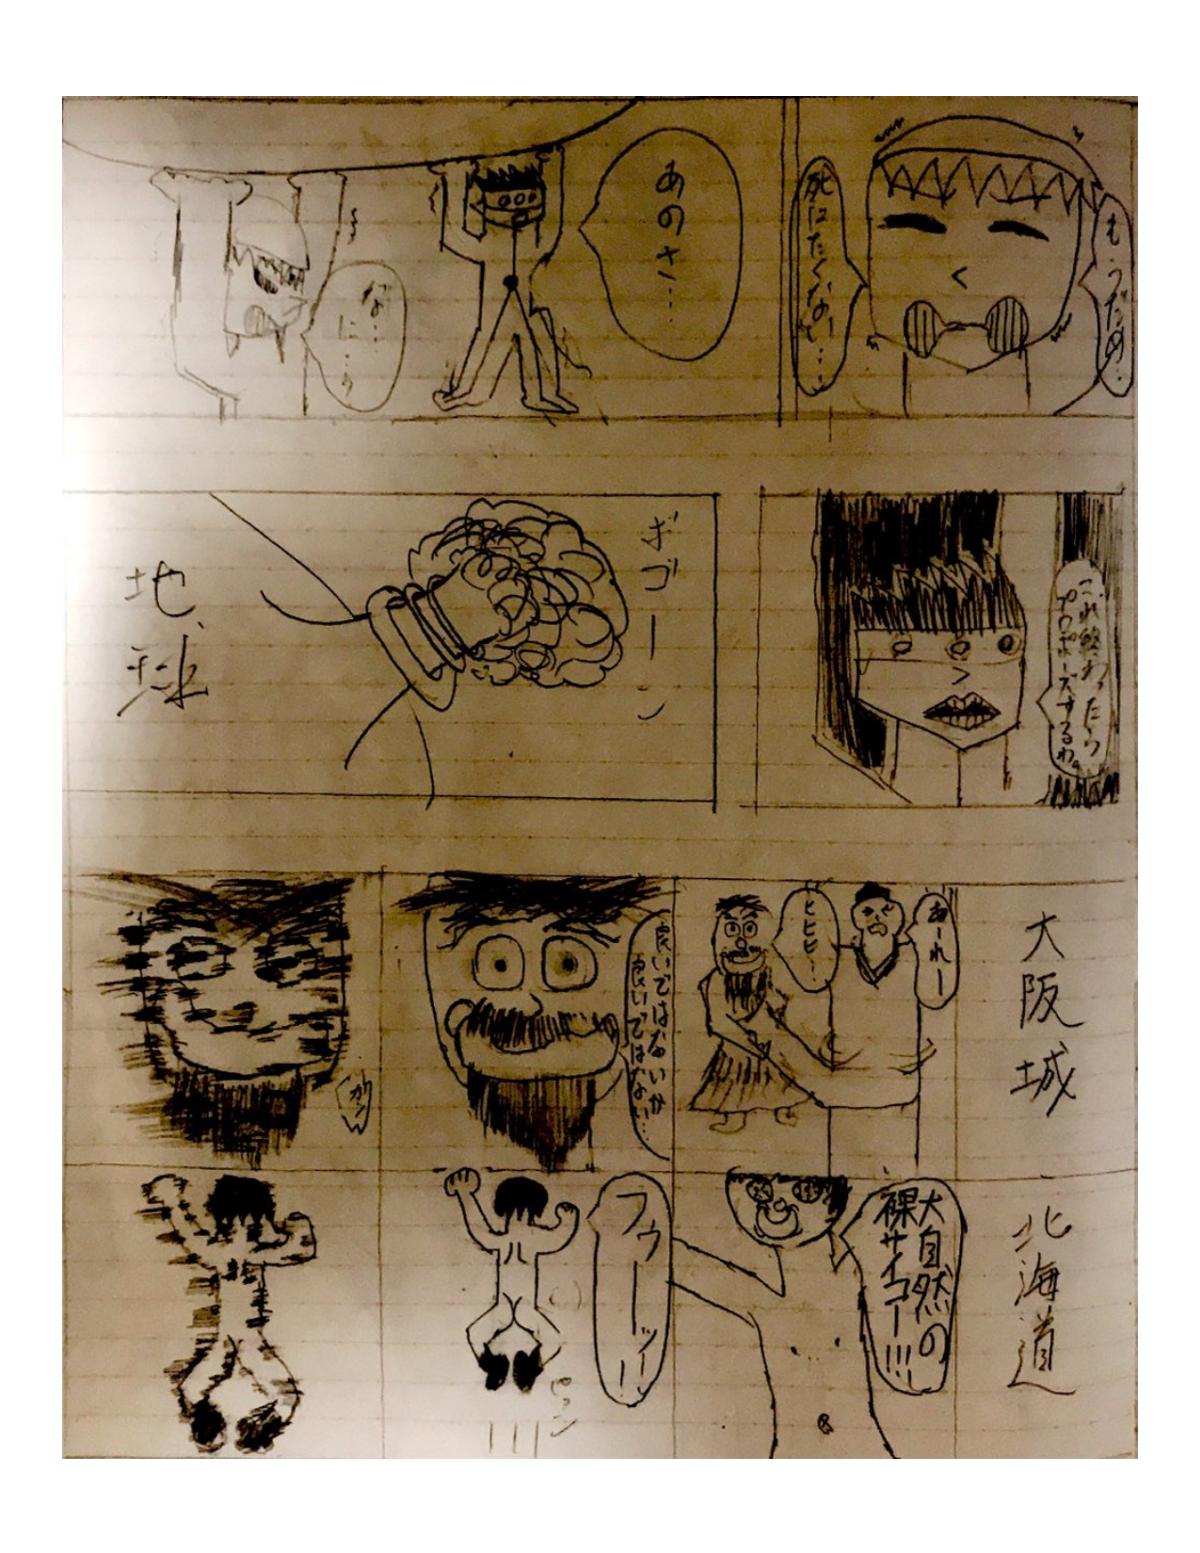 も…うだめ…
死にたくない……
あのさ…
な…
に…う
これ終わったら
プロポーズするわ。
ギゴーン
地球
大阪城
あーれー
ヒヒヒ…
良いではないか
良いではない…
北海道
大自然の
裸サイコー!!!
フゥーッ!!
ピョン